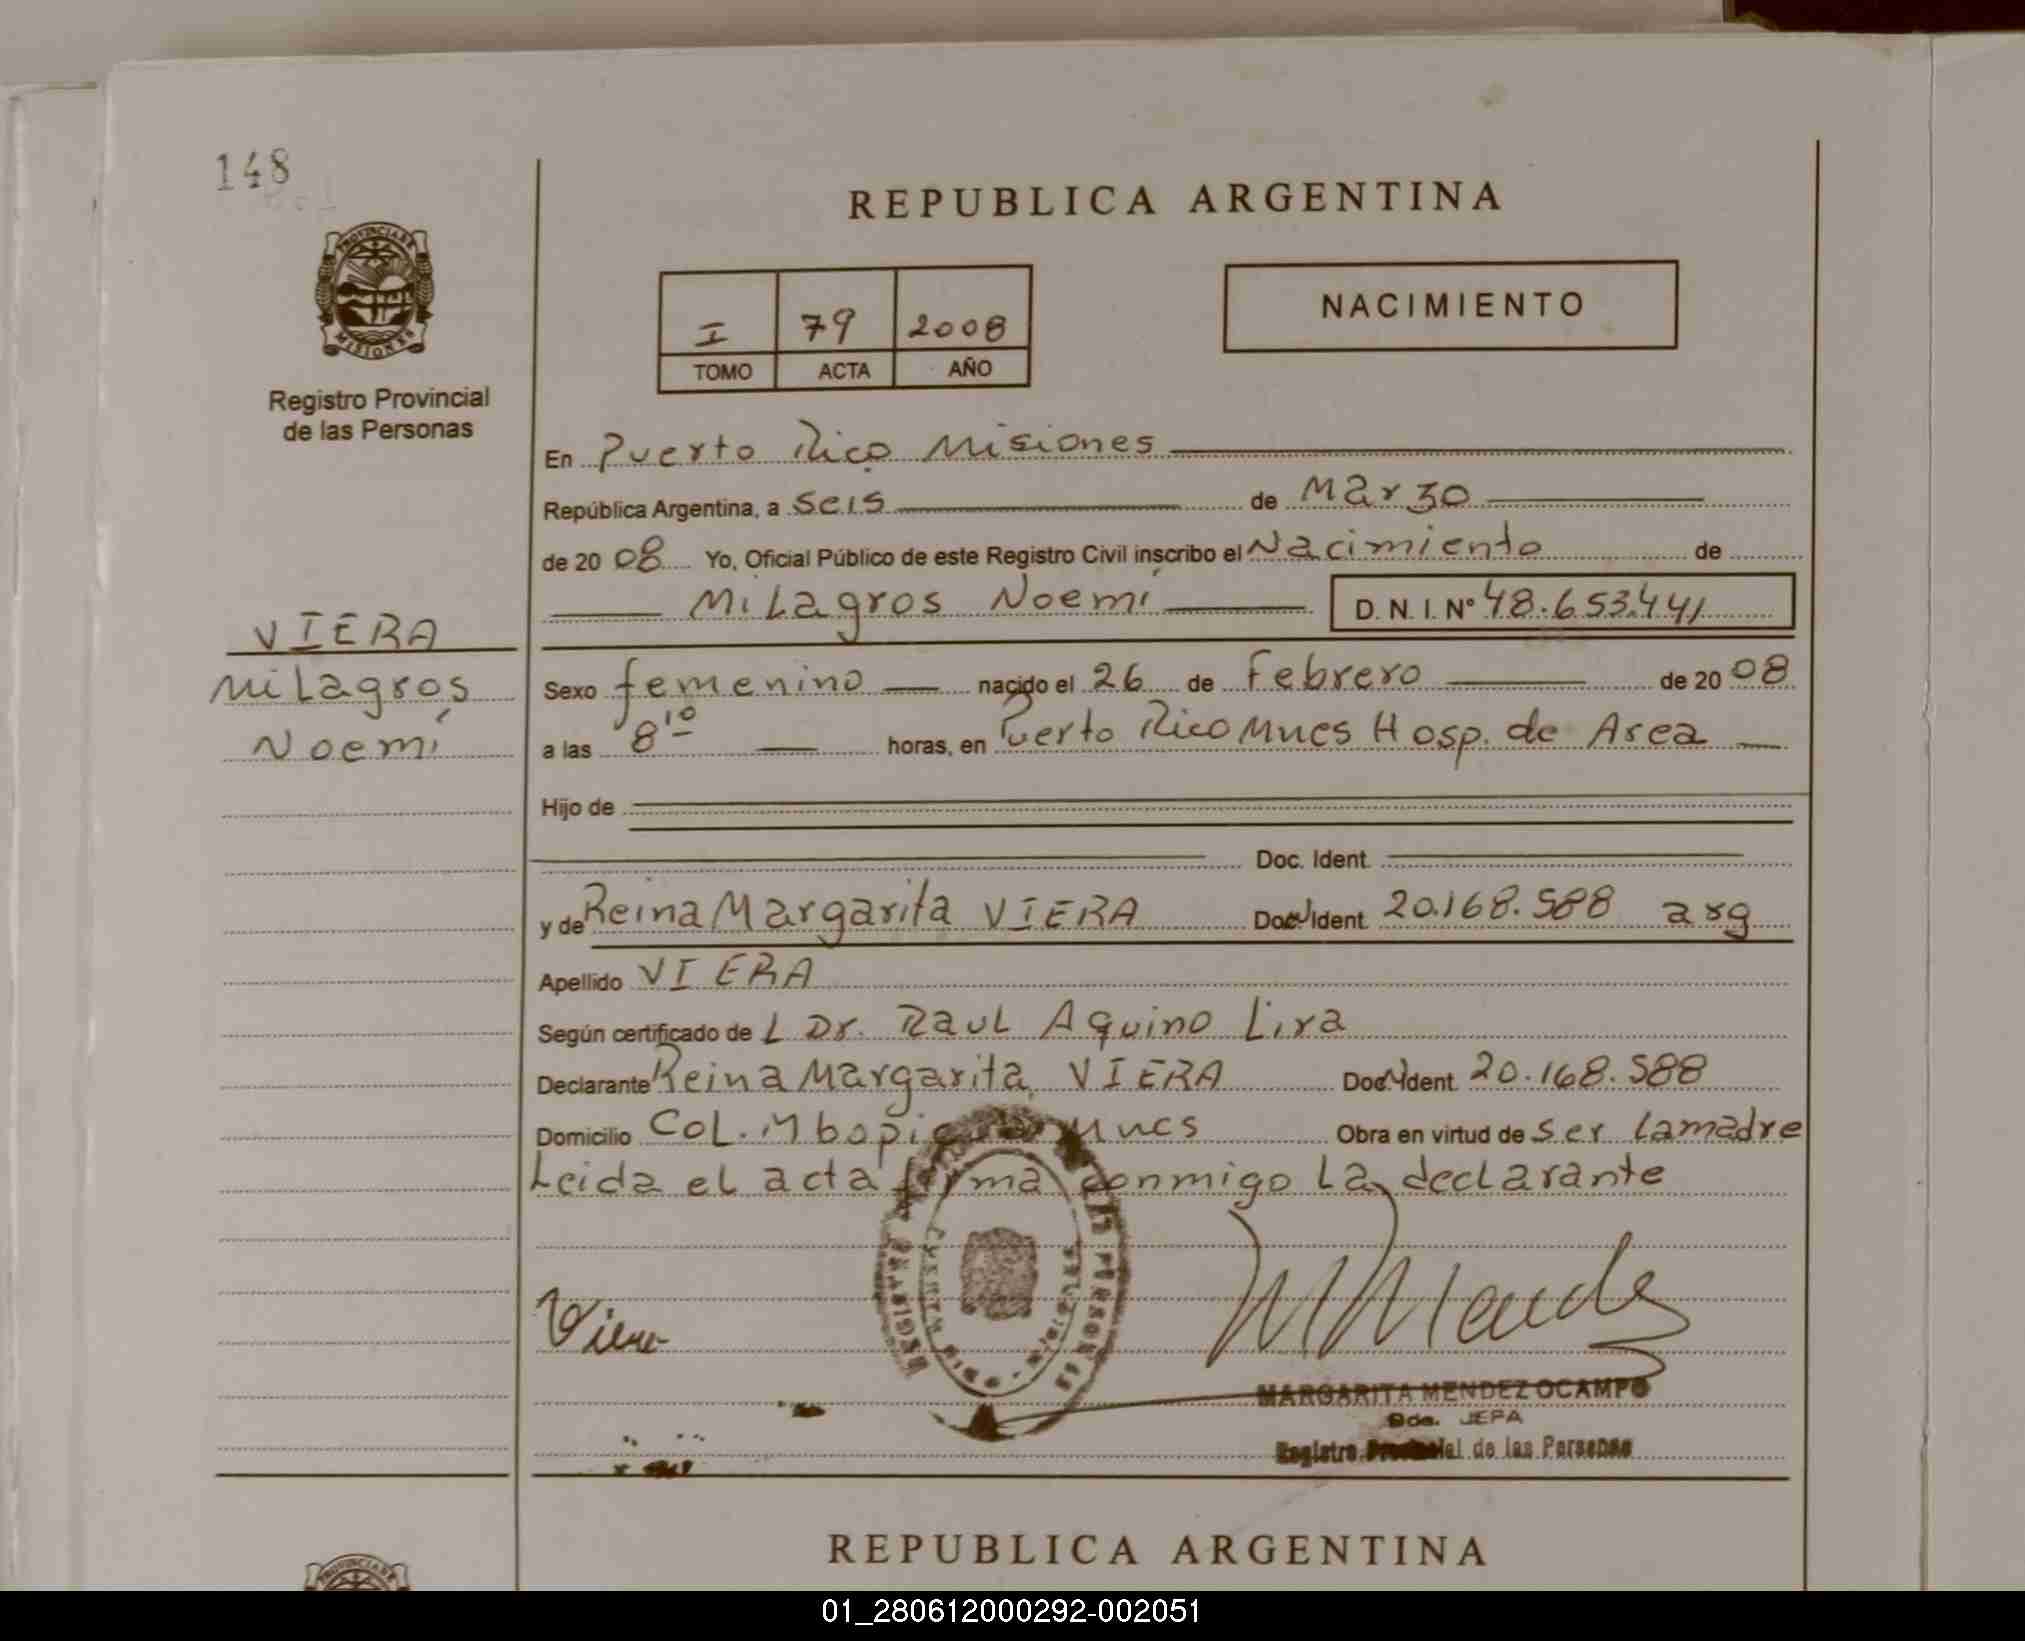 148
REPUBLICA ARGENTINA
PROVINCIA DE
MISIONES
Registro Provincial
de las Personas
I 79 2008
TOMO ACTA AÑO
NACIMIENTO
En Puerto Rico Misiones
República Argentina, a seis de Marzo
de 20 08 Yo, Oficial Público de este Registro Civil inscribo el Nacimiento de
Milagros Noemí D. N. I. Nº 48.653.441
VIERA
Milagros
Noemí
Sexo femenino nacido el 26 de Febrero de 20 08
a las 8 10 horas, en Puerto Rico Mnes Hosp. de Area
Hijo de
Doc. Ident.
y de Reina Margarita VIERA Doc. Ident. 20.168.588 arg
Apellido VIERA
Según certificado de L Dr. Raul Aquino Lira
Declarante Reina Margarita VIERA Doc. Ident. 20.168.588
Domicilio Col. Mnes Obra en virtud de ser la madre
Leida el acta firma conmigo la declarante
Viera
MARGARITA MENDEZ OCAMPO
JEFA
Registro Provincial de las Personas
REPUBLICA ARGENTINA
01_280612000292-002051